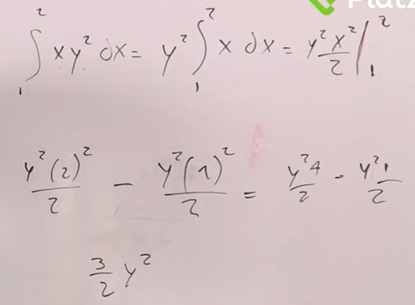 Platz
∫₁² xy² dx = y² ∫₁² x dx = y² x²/2 |₁²
y²(2)²/2 - y²(1)²/2 = y²4/2 - y²1/2
3/2 y²